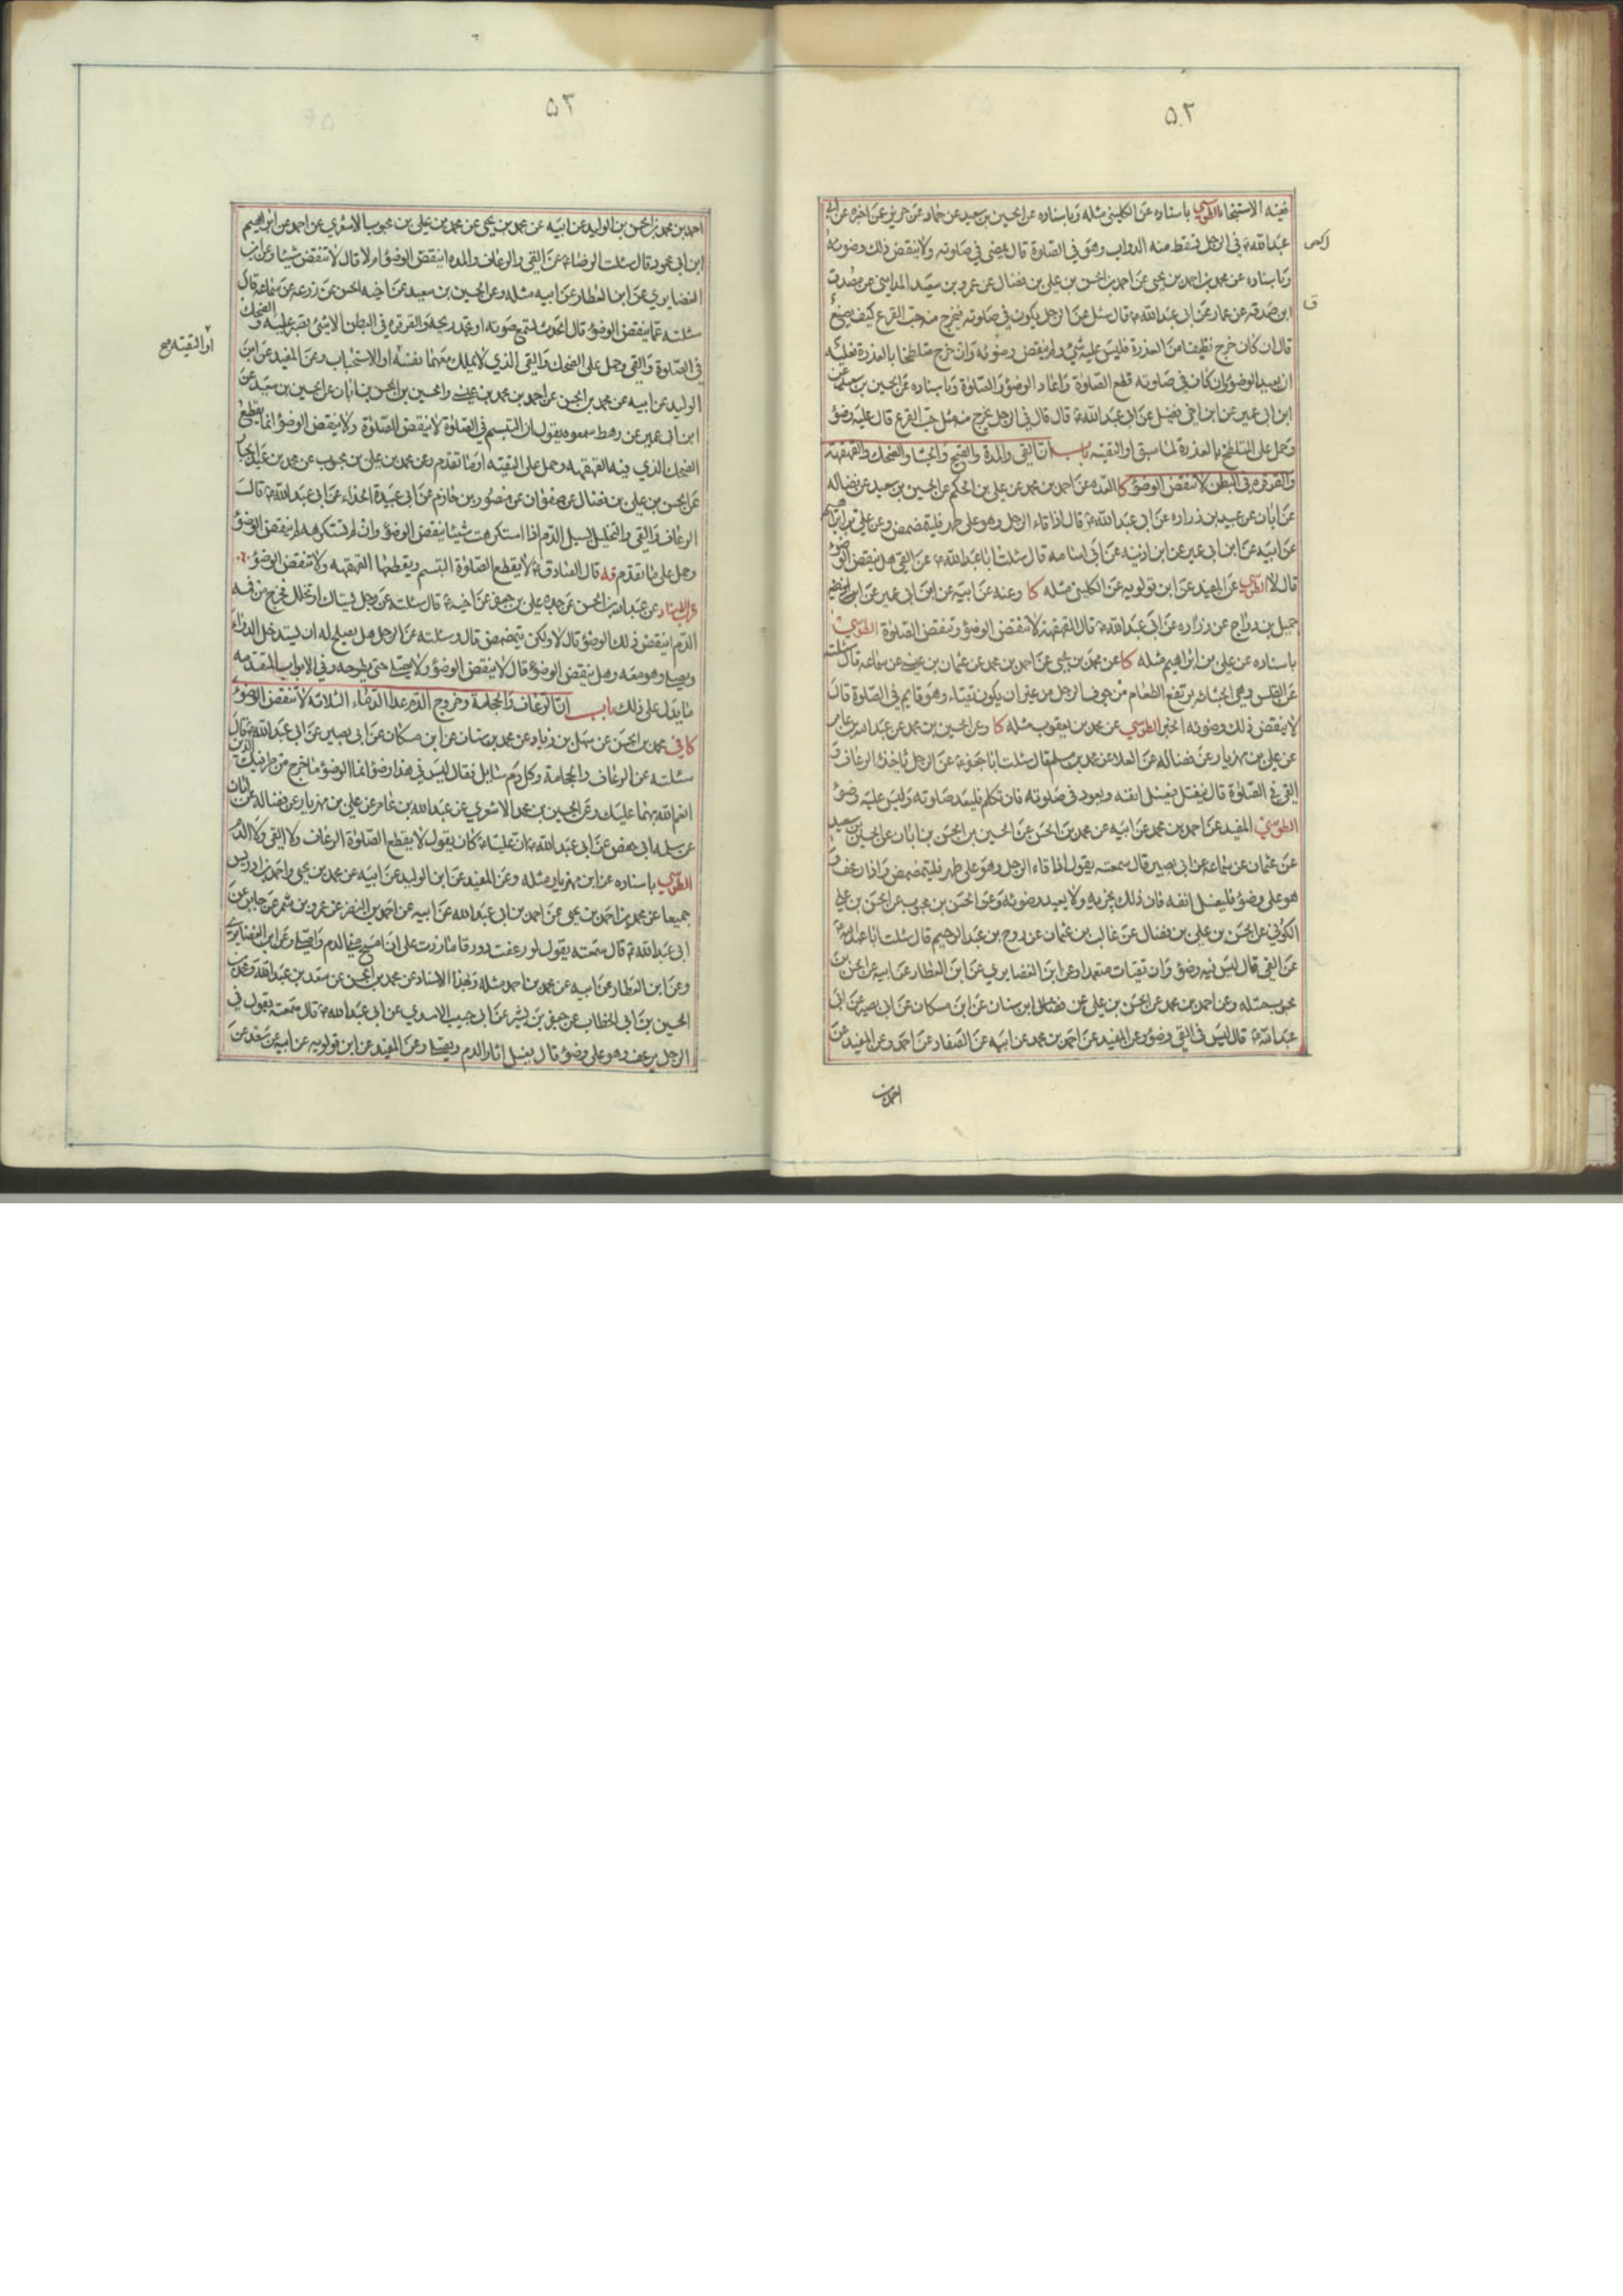 ۵۲
فيه الاستنجاء الطوسي باسناده عن الكليني مثله وباسناده عن الحسين بن سعيد عن حماد عن حريز عن اخبره عن ابي
عبد الله ع في الرجل يسقط منه الدواب وهو في الصلوة قال يمضي في صلوته ولا ينقض ذلك وضوئه
وباسناده عن محمد بن احمد بن يحيى عن احمد بن الحسن بن علي بن فضال عن عمرو بن سعيد المدايني عن مصدق
ابن صدقه عن عمار عن ابي عبد الله ع قال سئل عن الرجل يكون في صلوته فيخرج منه حب القرع كيف يصنع
قال ان كان خرج نظيفا من العذرة فليس عليه شئ ولم ينقض وضوئه وان خرج متلطخا بالعذرة فعليه
ان يعيد الوضوء وان كان في صلوته قطع الصلوة واعاد الوضوء والصلوة وباسناده عن الحسين بن سعيد عن
ابن ابي عمير عن ابن اخي فضيل عن ابي عبد الله ع قال قال في الرجل يخرج منه مثل حب القرع قال عليه وضوء
وحمل على المتلطخ بالعذرة لما سبق او التقيه باب ان القي والمدة والقيح والجشاء والضحك والقهقهة
والقرقرة في البطن لا تنقض الوضوء كا العده عن احمد بن محمد عن علي بن الحكم عن الحسين بن سعيد عن فضاله
عن ابان عن عبيد بن زراره عن ابي عبد الله ع قال اذا قاء الرجل وهو على طهر فليتمضمض وعن علي بن ابراهيم
عن ابيه عن ابن ابي عمير عن ابن اذينه عن ابي اسامه قال سئلت ابا عبد الله ع عن القي هل ينقض الوضوء
قال لا الطوسي عن المفيد عن ابن قولويه عن الكليني مثله كا وعنه عن ابيه عن ابن ابي عمير عن
جميل بن دراج عن زراره عن ابي عبد الله ع قال القهقهة لا تنقض الوضوء وتنقض الصلوة الطوسي
باسناده عن علي بن ابراهيم مثله كا عن محمد بن يحيى عن احمد بن محمد عن عثمان بن عيسى عن سماعه قال سئلته
عن القلس وهي الجشاء يرتفع الطعام من جوف الرجل من غير ان يكون تقياء وهو قايم في الصلوة قال
لا ينقض ذلك وضوئه الخبر الطوسي عن محمد بن يعقوب مثله كا وعن الحسين بن محمد عن عبد الله بن عامر
عن علي بن مهزيار عن فضاله عن العلا عن محمد بن مسلم قال سئلت ابا جعفر ع عن الرجل ياخذه الرعاف و
القي في الصلوة قال ينفتل يغسل انفه ويعود في صلوته فان تكلم فليعد صلوته وليس عليه وضوء
الطوسي المفيد عن احمد بن محمد عن ابيه عن محمد بن الحسن عن الحسين بن الحسن بن ابان عن الحسين بن سعيد
عن عثمان عن سماعه عن ابي بصير قال سمعته يقول اذا قاء الرجل وهو على طهر فليتمضمض واذا رعف و
هو على وضوء فليغسل انفه فان ذلك يجزيه ولا يعيد وضوئه وعن الحسن بن محبوب عن الحسن بن علي
الكوفي عن الحسن بن علي بن فضال عن غالب بن عثمان عن روح بن عبد الرحيم قال سئلت ابا عبد الله ع
عن القي قال ليس فيه وضوء وان تقيات متعمدا وعن ابن الغضايري عن ابن العطار عن ابيه عن ابن
محبوب مثله وعن احمد بن محمد عن الحسن بن علي عن فضال ابن سنان عن ابن مسكان عن ابي بصير عن ابي
عبد الله ع قال ليس في القي وضوء وعن المفيد عن احمد بن محمد عن ابيه عن الصفار عن احمد وعن المفيد عن
احمد بن
۵۳
احمد بن محمد بن الحسن بن الوليد عن ابيه عن محمد بن يحيى عن محمد بن علي بن محبوب الاشعري عن احمد عن ابراهيم
ابن ابي محمود قال سئلت الرضا ع عن القي والرعاف والمده اينقض الوضوء ام لا قال لا تنقض شيئا وعن ابن
الغضايري عن ابن العطار عن ابيه مثله وعن الحسين بن سعيد عن اخيه الحسن عن زرعه عن سماعه قال
سئلته عما ينقض الوضوء قال الحدث تسمع صوته او تجد ريحه والقرقره في البطن الا شئ تصبر عليه والضحك
في الصلوة والقي وحمل على الضحك والقي الذي لا يملك معهما نفسه او الاستحباب وعن المفيد عن ابن
او التقيه صح
الوليد عن ابيه عن محمد بن الحسن عن احمد بن محمد بن عيسى والحسين بن الحسن بن ابان عن الحسين بن سعيد عن
ابن ابي عمير عن رهط سمعوه يقول ان التبسم في الصلوة لا ينقض الصلوة ولا ينقض الوضوء انما يقطع
الضحك الذي فيه القهقهه وحمل على التقيه او ما تقدم وعن محمد بن علي بن محبوب عن محمد بن عبد الجبار
عن الحسن بن علي بن فضال عن صفوان عن منصور بن حازم عن ابي عبيدة الحذاء عن ابي عبد الله ع قال
الرعاف والقي والتخليل يسيل الدم اذا استكرهت شيئا ينقض الوضوء وان لم تستكرهه لم ينقض الوضوء
وحمل على ما تقدم فه قال الصادق ع لا يقطع الصلوة التبسم ويقطعها القهقهه ولا تنقض الوضوء
قرب الاسناد عن عبد الله بن الحسن عن جده علي بن جعفر عن اخيه ع قال سئلته عن رجل يستاك او تخلل فخرج من فمه
الدم اينقض ذلك الوضوء قال لا ولكن يتمضمض قال وسئلته عن الرجل هل يصلح له ان يستدخل الدواء
ويصلي وهو معه وهل ينقض الوضوء قال لا ينقض الوضوء ولا يصلي حتى يطرحه وفي الابواب المتقدمه
ما يدل على ذلك باب ان الرعاف والحجامة وخروج الدم عدا الدماء الثلاثة لا تنقض الوضوء
كافي محمد بن الحسن عن سهل بن زياد عن محمد بن سنان عن ابن مسكان عن ابي بصير عن ابي عبد الله ع قال
سئلته عن الرعاف والحجامة وكل دم سايل فقال ليس في هذا وضوء انما الوضوء ما خرج من طرفيك الذين
انعم الله بهما عليك وعن الحسين بن محمد الاشعري عن عبد الله بن عامر عن علي بن مهزيار عن فضاله عن ابان
عن سلمه ابي حفص عن ابي عبد الله ع ان عليا ع كان يقول لا يقطع الصلوة الرعاف ولا القي ولا الدم
الطوسي باسناده عن ابن مهزيار مثله وعن المفيد عن ابن الوليد عن ابيه عن محمد بن يحيى واحمد بن ادريس
جميعا عن محمد بن احمد بن يحيى عن احمد بن ابي عبد الله عن ابيه عن احمد بن النضر عن عمرو بن شمر عن جابر عن
ابي عبد الله ع قال سمعته يقول لو رعفت دورقا ما زدت على ان امسح مني الدم واصلي وعن ابن الغضايري
وعن ابن العطار عن ابيه عن محمد بن احمد مثله وبهذا الاسناد عن محمد بن الحسن عن سعد بن عبد الله وعن
الحسين بن ابي الخطاب عن جعفر بن بشير عن ابي حبيب الاسدي عن ابي عبد الله ع قال سمعته يقول في
الرجل يرعف وهو على وضوء قال يغسل اثار الدم ويصلي وعن المفيد عن ابن قولويه عن ابيه عن سعد عن